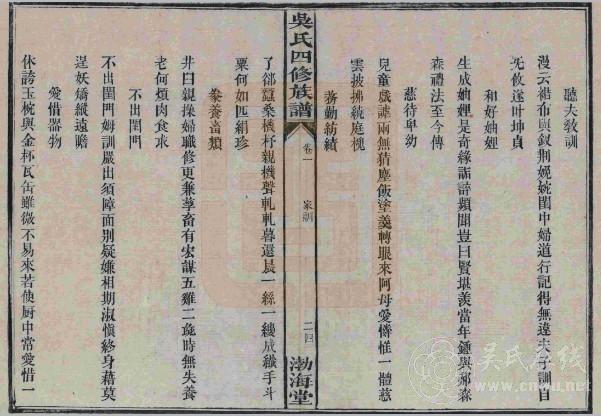 聽夫教訓
漫云裙布與釵荆婉娩閨中婦道行記得無違夫子訓自
无攸遂叶坤貞
和好妯娌
生成妯娌是奇緣詬誶頻聞豈曰賢堪羨當年鍾與郝森
森禮法至今傳
慈待卑幼
兒童戲謔兩無猜塵飯塗羹轉眼來阿母愛憐惟一體慈
雲披拂繞庭槐
務勤紡績
吳氏四修族譜
卷一
家訓
二四
渤海堂
了郤蠶桑機杼親機聲軋軋暮還晨一絲一縷成纖手斗
粟何如匹絹珍
豢養畜類
井臼親操婦職修更兼孳畜有宏謀五雞二彘時無失養
老何煩肉食求
不出閨門
不出閨門姆訓嚴出須障面別疑嫌相期淑慎終身藉莫
逞妖嬌縱遠瞻
愛惜器物
休誇玉椀與金杯瓦缶雖微不易來若使厨中常愛惜一
吴氏在线